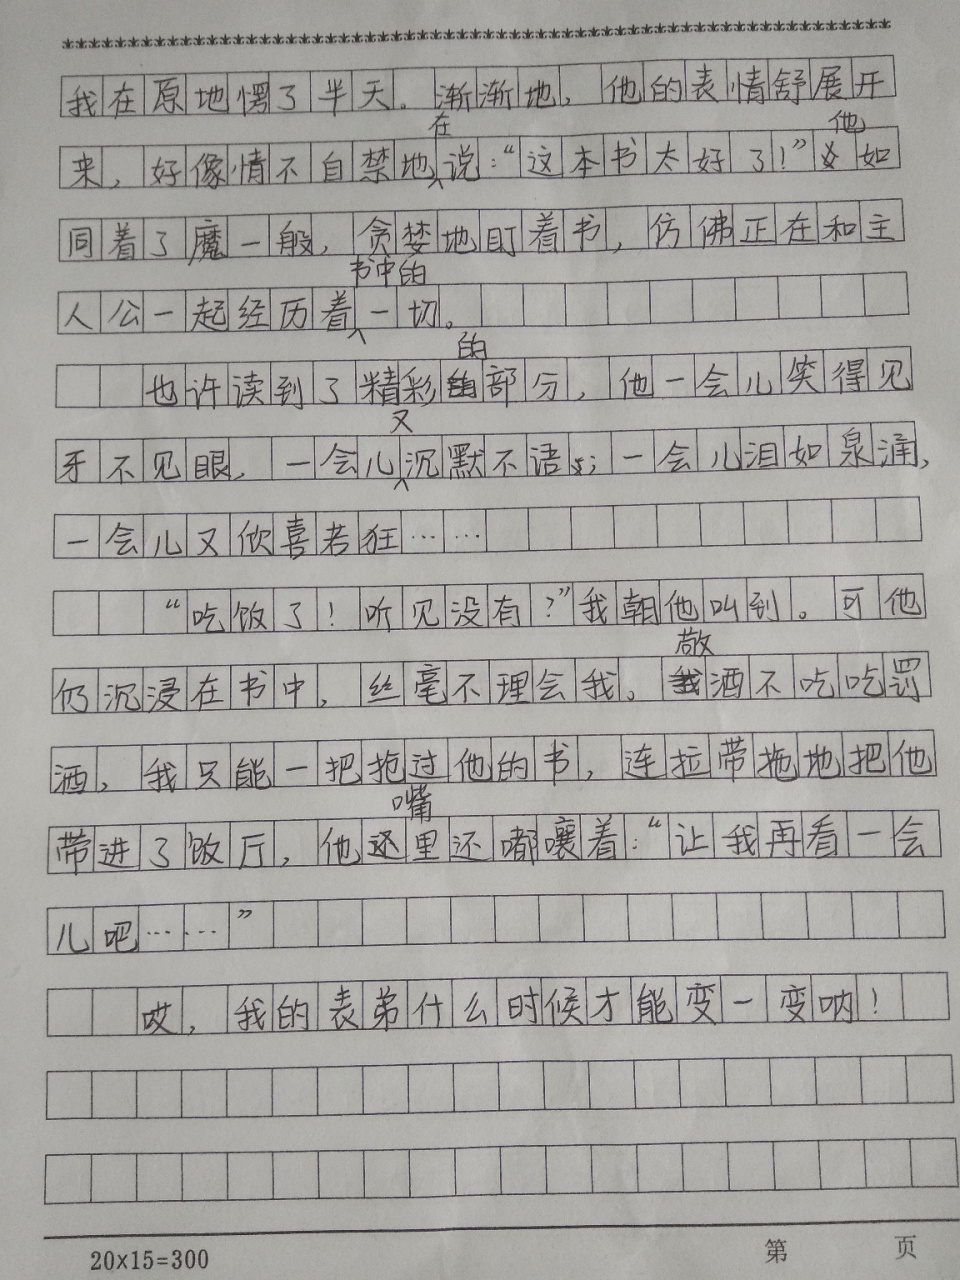 我在原地愣了半天。渐渐地，他的表情舒展开
来，好像情不自禁地在说：“这本书太好了！”他如
同着了魔一般，贪婪地盯着书，仿佛正在和主
人公一起经历着书中的一切。
也许读到了精彩的部分，他一会儿笑得见
牙不见眼，一会儿又沉默不语；一会儿泪如泉涌，
一会儿又欣喜若狂……
“吃饭了！听见没有？”我朝他叫到。可他
仍沉浸在书中，丝毫不理会我。敬酒不吃吃罚
酒，我只能一把抢过他的书，连拉带拖地把他
带进了饭厅，他嘴里还嘟囔着：“让我再看一会
儿吧……”
哎，我的表弟什么时候才能变一变呐！
20×15=300
第 页